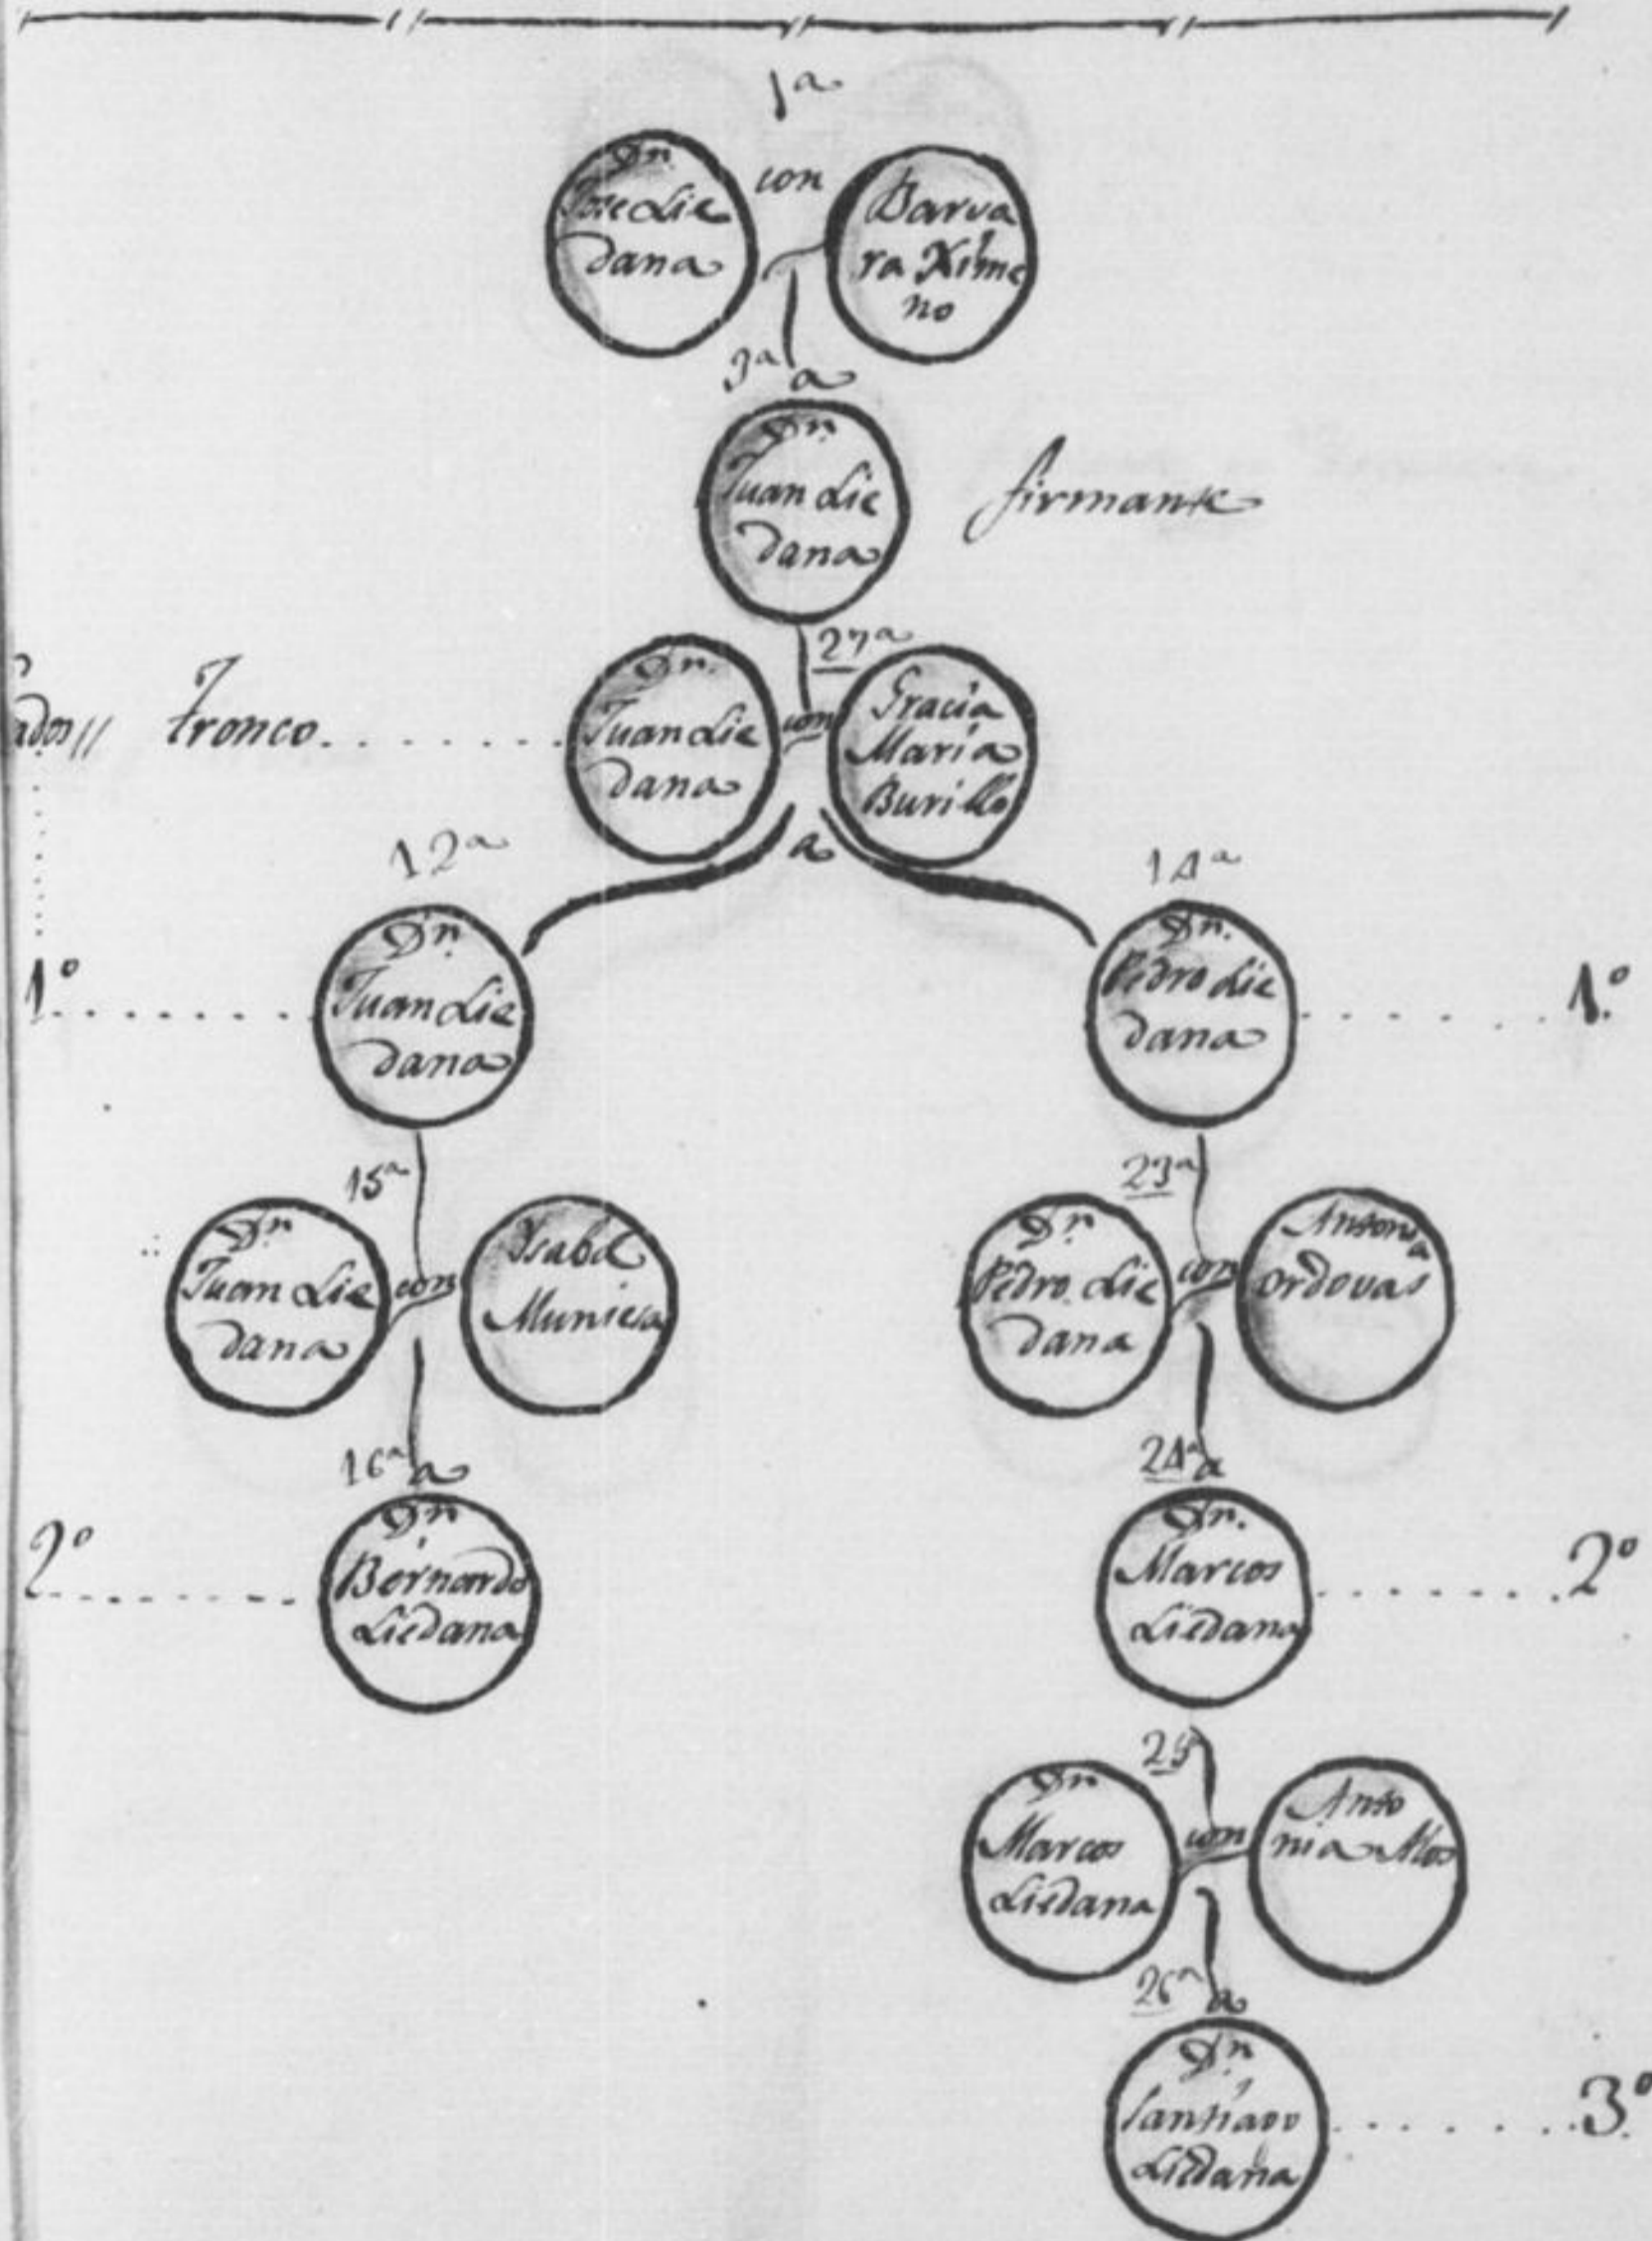 1ª
Dn.
Jose Lie
dana
con
Barva
ra Xime
no
3ª a
Dn.
Juan Lie
dana
firmante
27ª
ados//
Tronco
Dn.
Juan Lie
dana
con
Gracia
Maria
Burillo
a
12ª
14ª
1º
Dn.
Juan Lie
dana
Dn.
Pedro Lie
dana
1.º
15ª
23ª
Dn
Juan Lie
dana
con
Isabel
Muniesa
Dn
Pedro Lie
dana
con
Antonia
Ordovas
16ª a
24ª a
2º
Dn
Bernardo
Liedana
Dn.
Marcos
Liedana
2º
25
Dn
Marcos
Liedana
con
Anto
nia Mos
26ª a
Dn
Santiago
Liedana
3º